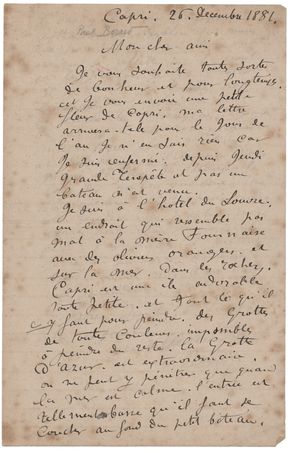 Capri. 26. Decembre 1881.
Paul Berard
Mon cher ami
Je vous souhaite toute sorte
de bonheur et pour longtemps,
et je vous envoie une petite
fleur de Capri. ma lettre
arrivera-t-elle pour le jour de
l'an je n'en sais rien car
je suis enfermé. depuis jeudi
grande tempête et pas un
bateau n'est venu.
Je suis à l'hôtel du Louvre.
un endroit qui ressemble pas
mal à la mère Fournaise
avec des oliviers orangers. et
sur la mer. Dans les rochers
Capri est une île adorable
toute petite. et tout ce qu'il
y faut pour peindre. des Grottes
de toutes couleurs. impossible
à peindre du reste. la Grotte
d'azur. est extraordinaire.
on ne peut y pénétrer que quand
la mer est calme. l'entrée est
tellement basse qu'il faut se
coucher au fond du petit bateau.